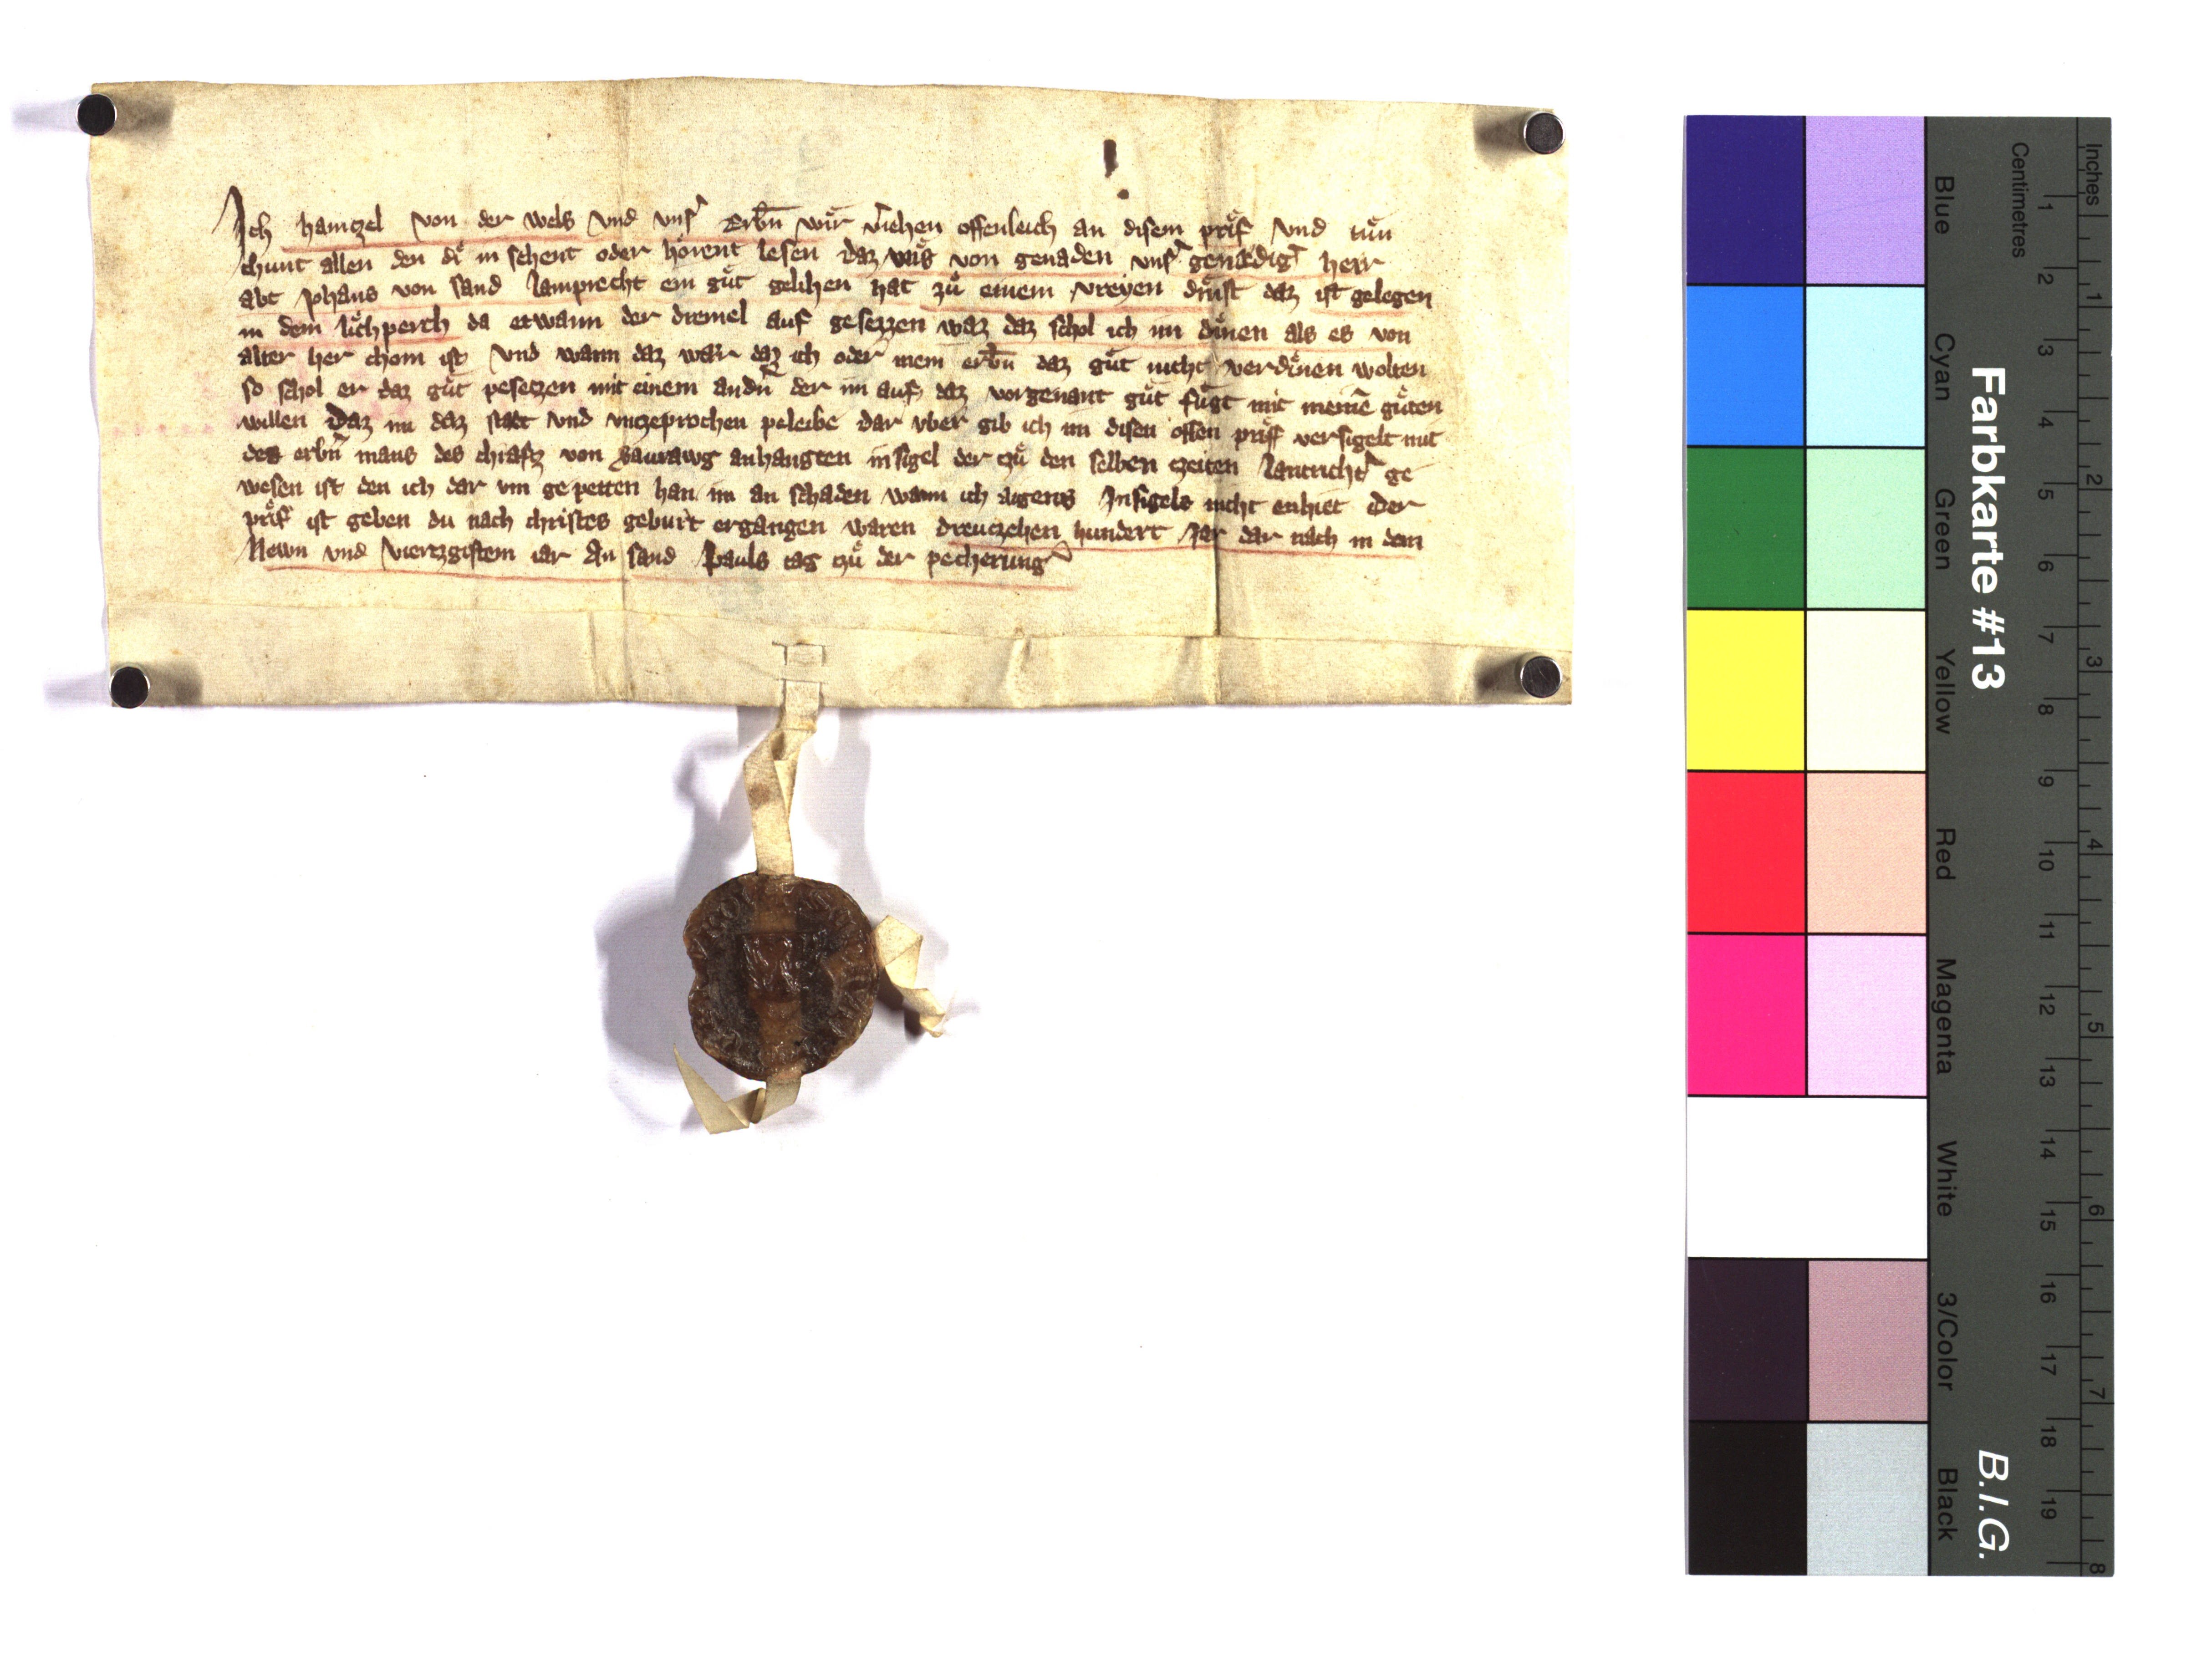 Ich haintzel von der wels vnd vnsˀ Erbn̄ wir vˀiehen offenleich an disem prif vnd tůn
chunt allen den di in sehent oder hörent lesen daz vns von genaden vnsˀ genædigˀ herr
abt Johans von sand lamprecht ein gůt gelihen hat zů einem vreyen dinst daz ist gelegen
in dem lichperch da etwann der dremel auf gesezzen waz daz schol ich im dinen als es von
alter her chom ist vnd wann daz wær daz ich oder mein erbn̄ daz gůt nicht verdinen wolten
so schol er daz gůt pesetzen mit einem andn̄ der im auf daz vorgenant gůt fůgt mit meinē gůten
willen Daz im daz stæt vnd vnzeprochen peleibe dar vber gib ich im disen offen priff versigelt mit
des erbn̄ mans des chrafts von Saurawg anhangten insigel der tzů den selben tzeiten lantrichtˀ ge
wesen ist den ich dar vm gepetten han im an schaden wann ich aigens Insigels nicht enhiet Der
prif ist geben du nach christes geburt ergangen waren dreutzehen hundert Jar dar nach in dem
Newn vnd viertzgistem iar An sand Pauls tag tzů der pecherung
Farbkarte #13
B.I.G.
Inches
Centimetres
1 2 3 4 5 6 7 8 9 10 11 12 13 14 15 16 17 18 19
1 2 3 4 5 6 7 8
Blue
Cyan
Green
Yellow
Red
Magenta
White
3/Color
Black